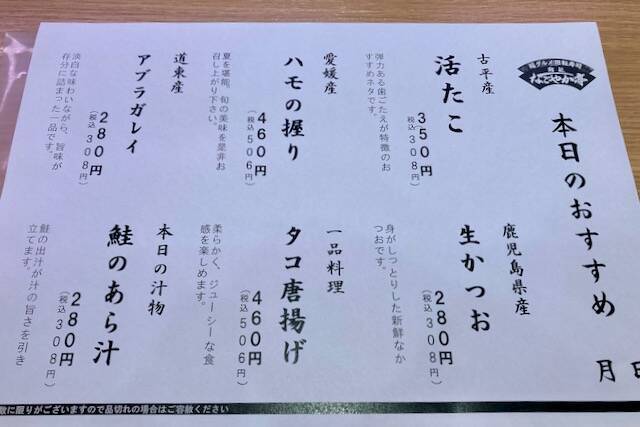 グルメ回転寿司
なごやか亭
本日のおすすめ
月日
古平産
活たこ
350円
(税込308円)
弾力ある歯ごたえが特徴のお
すすめネタです。
愛媛産
ハモの握り
460円
(税込506円)
夏を堪能。旬の美味を是非お
召し上がり下さい。
道東産
アブラガレイ
280円
(税込308円)
淡白な味わいながら、旨味が
存分に詰まった一品です。
鹿児島県産
生かつお
280円
(税込308円)
身がしっとりした新鮮なか
つおです。
一品料理
タコ唐揚げ
460円
(税込506円)
柔らかく、ジューシーな食
感を楽しめます。
本日の汁物
鮭のあら汁
280円
(税込308円)
鮭の出汁が汁の旨さを引き
立てます。
数に限りがございますので品切れの場合はご容赦ください